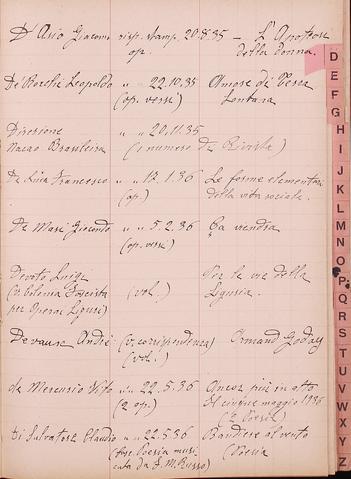 D'Asio Giacomo risp. stamp. 20.8.35 — L'Apoteosi
op. della donna.
" " 22.10.35 Amore di Terra
(op. versi) Lontana
Direzione " " 20.11.35
Nação Brasileira (1 numero da Rivista)
De Francesco " " 17.1.36 Le forme elementari
(op.) della vita sociale.
De Masi Giocondo " " 5.2.36 Ca viendra
(op. versi)
Devoto, Luigi Per le vie della
(v. Colonia Fascista (vol.) Liguria.
per Operai Liguri)
André (v. corrispondenza) Armand Godoy
(vol.)
de Mercurio Vito " " 22.5.36 Ancor più in alto
(2 op.) El cinque maggio 1936
(2 Poesie)
Di Salvatore Claudio " " 22.5.36 Bandiere al vento
Poesia musi- (Poesia
cata da S. M. Russo)
D
E
F
G
H
I
J
K
L
M
N
O
P
Q
R
S
T
U
V
W
X
Y
Z